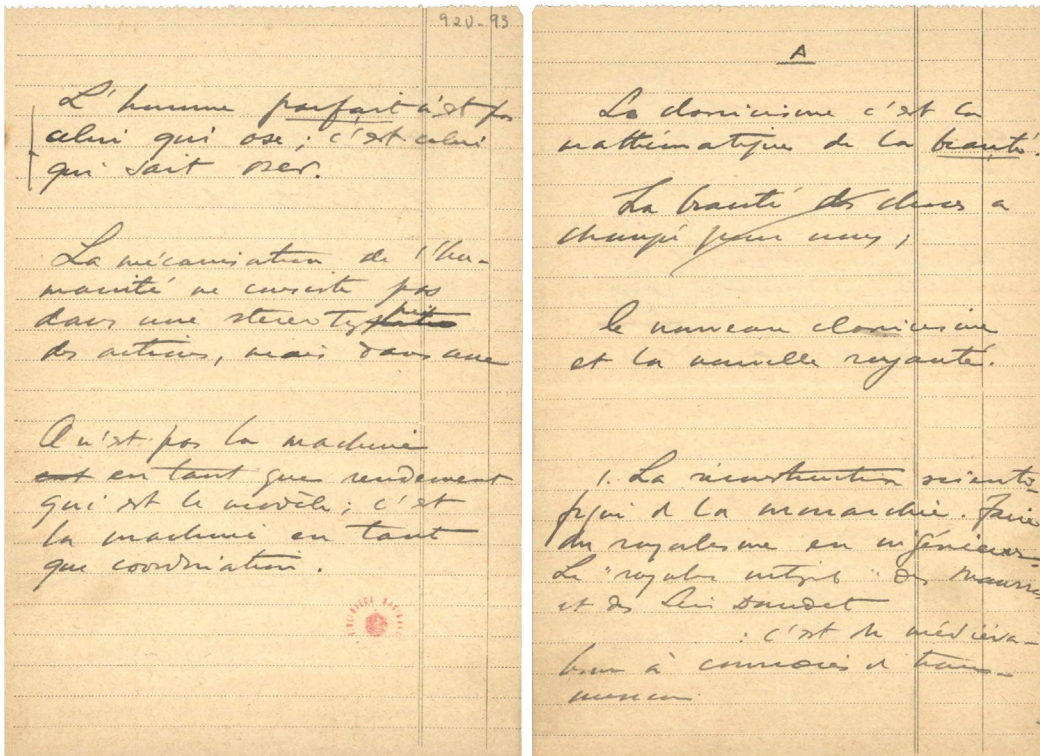 92U-93
L'homme parfait n'est pas
celui qui ose; c'est celui
qui sait oser.
La mécanisation de l'hu-
manité ne consiste pas
dans une stereotypie
des actions, mais dans une
Ce n'est pas la machine
en tant que rendement
qui est le modèle; c'est
la machine en tant
que coordination.
A
Le classicisme c'est la
mathématique de la beauté.
La beauté des choses a
changé pour nous;
le nouveau classicisme
et la nouvelle royauté.
1. La reconstruction scienti-
fique de la monarchie. Faire
du royalisme en ingénieurs
Le "royalisme intégral" des Maurras
et des Léon Daudet
: c'est du médiéva-
lisme à courroies de trans-
mission